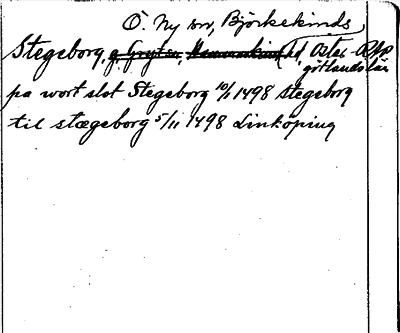 Ö. Ny sn, Björkekinds
Stegeborg, g. Gryts sn, Hammarkinds hd, Öster-
götlands län
pa wort slot Stegeborg 10/1 1498 Stegeborg
til stægeborg 5/11 1498 Linköping